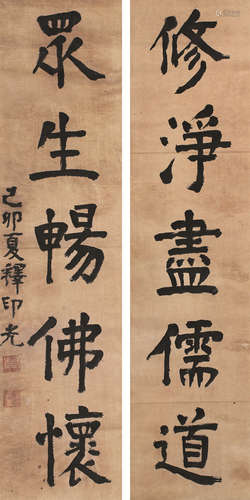 修淨盡儒道
眾生暢佛懷
己卯夏釋印光